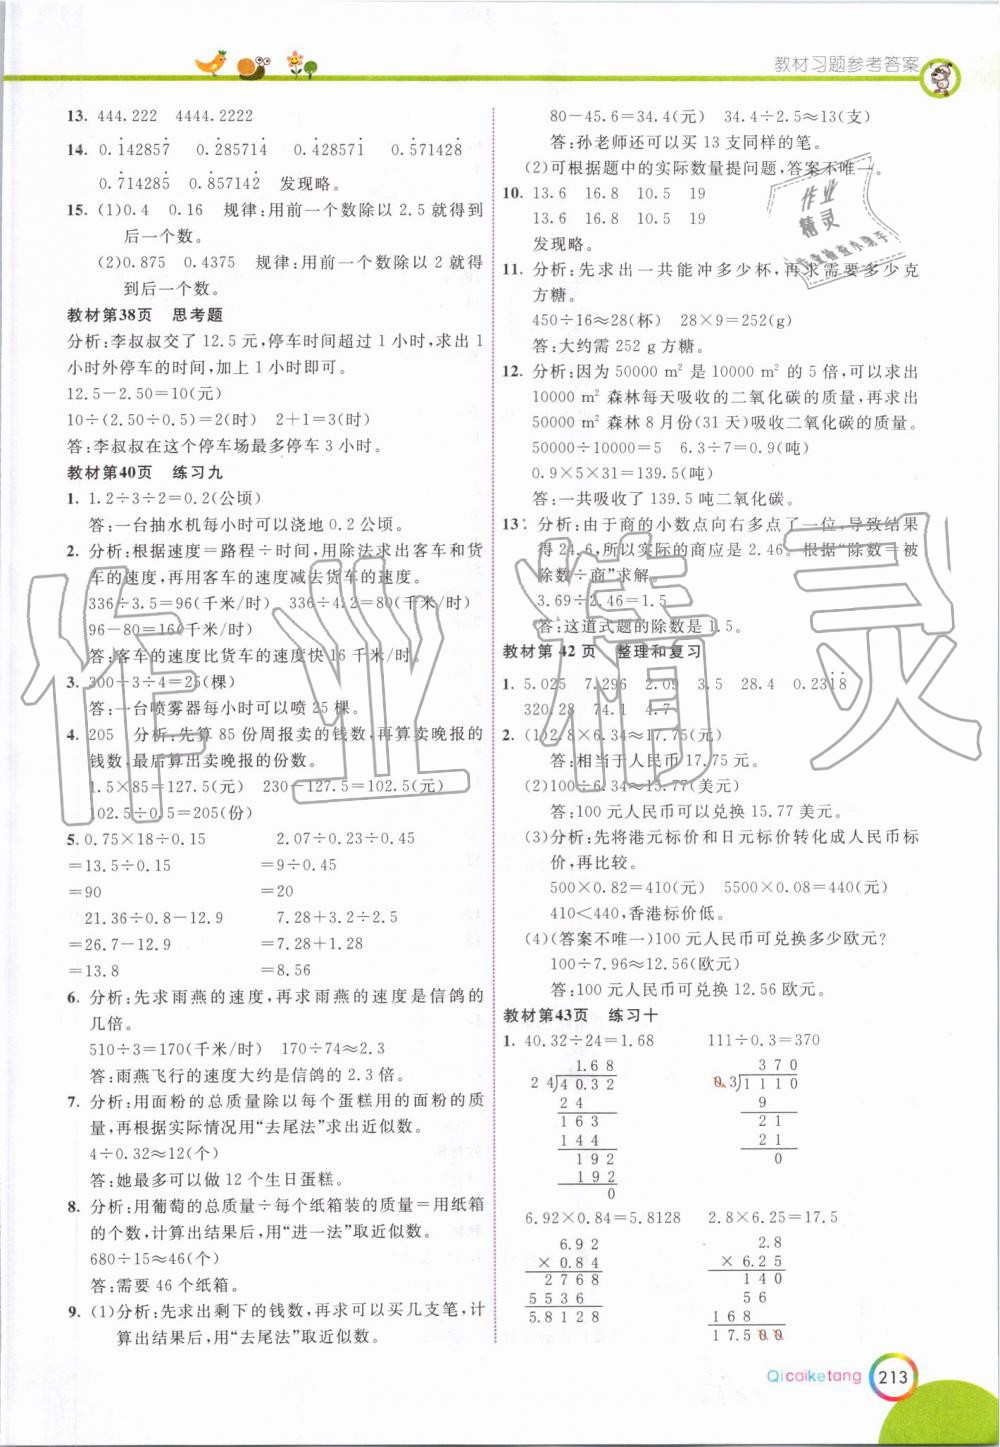 教材习题参考答案
13. 444.222　4444.2222
14. 0.1̇42857̇　0.2̇85714̇　0.4̇28571̇　0.5̇71428̇
0.7̇14285̇　0.8̇57142̇　发现略。
15. (1)0.4　0.16　规律:用前一个数除以 2.5 就得到
后一个数。
(2)0.875　0.4375　规律:用前一个数除以 2 就得
到后一个数。
教材第38页　思考题
分析:李叔叔交了 12.5 元,停车时间超过 1 小时,求出 1
小时外停车的时间,加上 1 小时即可。
12.5-2.50=10(元)
10÷(2.50÷0.5)=2(时)　2+1=3(时)
答:李叔叔在这个停车场最多停车 3 小时。
教材第40页　练习九
1. 1.2÷3÷2=0.2(公顷)
答:一台抽水机每小时可以浇地 0.2 公顷。
2. 分析:根据速度=路程÷时间,用除法求出客车和货
车的速度,再用客车的速度减去货车的速度。
336÷3.5=96(千米/时)　336÷4.2=80(千米/时)
96-80=16(千米/时)
答:客车的速度比货车的速度快 16 千米/时。
3. 300÷3÷4=25(棵)
答:一台喷雾器每小时可以喷 25 棵。
4. 205　分析:先算 85 份周报卖的钱数,再算卖晚报的
钱数,最后算出卖晚报的份数。
1.5×85=127.5(元)　230-127.5=102.5(元)
102.5÷0.5=205(份)
5. 0.75×18÷0.15　2.07÷0.23÷0.45
=13.5÷0.15　=9÷0.45
=90　=20
21.36÷0.8-12.9　7.28+3.2÷2.5
=26.7-12.9　=7.28+1.28
=13.8　=8.56
6. 分析:先求雨燕的速度,再求雨燕的速度是信鸽的
几倍。
510÷3=170(千米/时)　170÷74≈2.3
答:雨燕飞行的速度大约是信鸽的 2.3 倍。
7. 分析:用面粉的总质量除以每个蛋糕用的面粉的质
量,再根据实际情况用“去尾法”求出近似数。
4÷0.32≈12(个)
答:她最多可以做 12 个生日蛋糕。
8. 分析:用葡萄的总质量÷每个纸箱装的质量=用纸箱
的个数,计算出结果后,用“进一法”取近似数。
680÷15≈46(个)
答:需要 46 个纸箱。
9. (1)分析:先求出剩下的钱数,再求可以买几支笔,计
算出结果后,用“去尾法”取近似数。
80-45.6=34.4(元)　34.4÷2.5≈13(支)
答:孙老师还可以买 13 支同样的笔。
(2)可根据题中的实际数量提问题,答案不唯一。
10. 13.6　16.8　10.5　19
13.6　16.8　10.5　19
发现略。
11. 分析:先求出一共能冲多少杯,再求需要多少克
方糖。
450÷16≈28(杯)　28×9=252(g)
答:大约需 252 g 方糖。
12. 分析:因为 50000 m² 是 10000 m² 的 5 倍,可以求出
10000 m² 森林每天吸收的二氧化碳的质量,再求出
50000 m² 森林 8 月份(31 天)吸收二氧化碳的质量。
50000÷10000=5　6.3÷7=0.9(吨)
0.9×5×31=139.5(吨)
答:一共吸收了 139.5 吨二氧化碳。
13. 分析:由于商的小数点向右多点了一位,导致结果
得 24.6,所以实际的商应是 2.46。根据“除数=被
除数÷商”求解。
3.69÷2.46=1.5
答:这道式题的除数是 1.5。
教材第 42 页　整理和复习
1. 5.025　7.296　2.09　3.5　28.4　0.231̇8̇
320.28　74.1　4.7
2. (1)2.8×6.34≈17.75(元)
答:相当于人民币 17.75 元。
(2)100÷6.34≈15.77(美元)
答:100 元人民币可以兑换 15.77 美元。
(3)分析:先将港元标价和日元标价转化成人民币标
价,再比较。
500×0.82=410(元)　5500×0.08=440(元)
410<440,香港标价低。
(4)(答案不唯一)100 元人民币可兑换多少欧元?
100÷7.96≈12.56(欧元)
答:100 元人民币可兑换 12.56 欧元。
教材第43页　练习十
1. 40.32÷24=1.68　111÷0.3=370
1.68　370
24)40.32　0.3)1110
24　9
163　21
144　21
192　0
192
0
6.92×0.84=5.8128　2.8×6.25=17.5
6.92　2.8
×0.84　×6.25
2768　140
5536　56
5.8128　168
17.500
作业精灵
作业
精灵
Qicaiketang 213